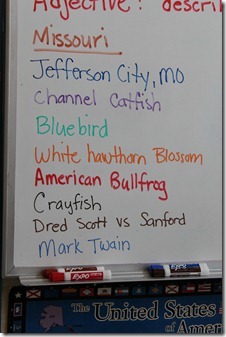 Adjective: descri
Missouri
Jefferson City, MO
Channel Catfish
Bluebird
White hawthorn Blossom
American Bullfrog
Crayfish
Dred Scott vs Sanford
Mark Twain
EXPO EXPO
The United States
of Amer